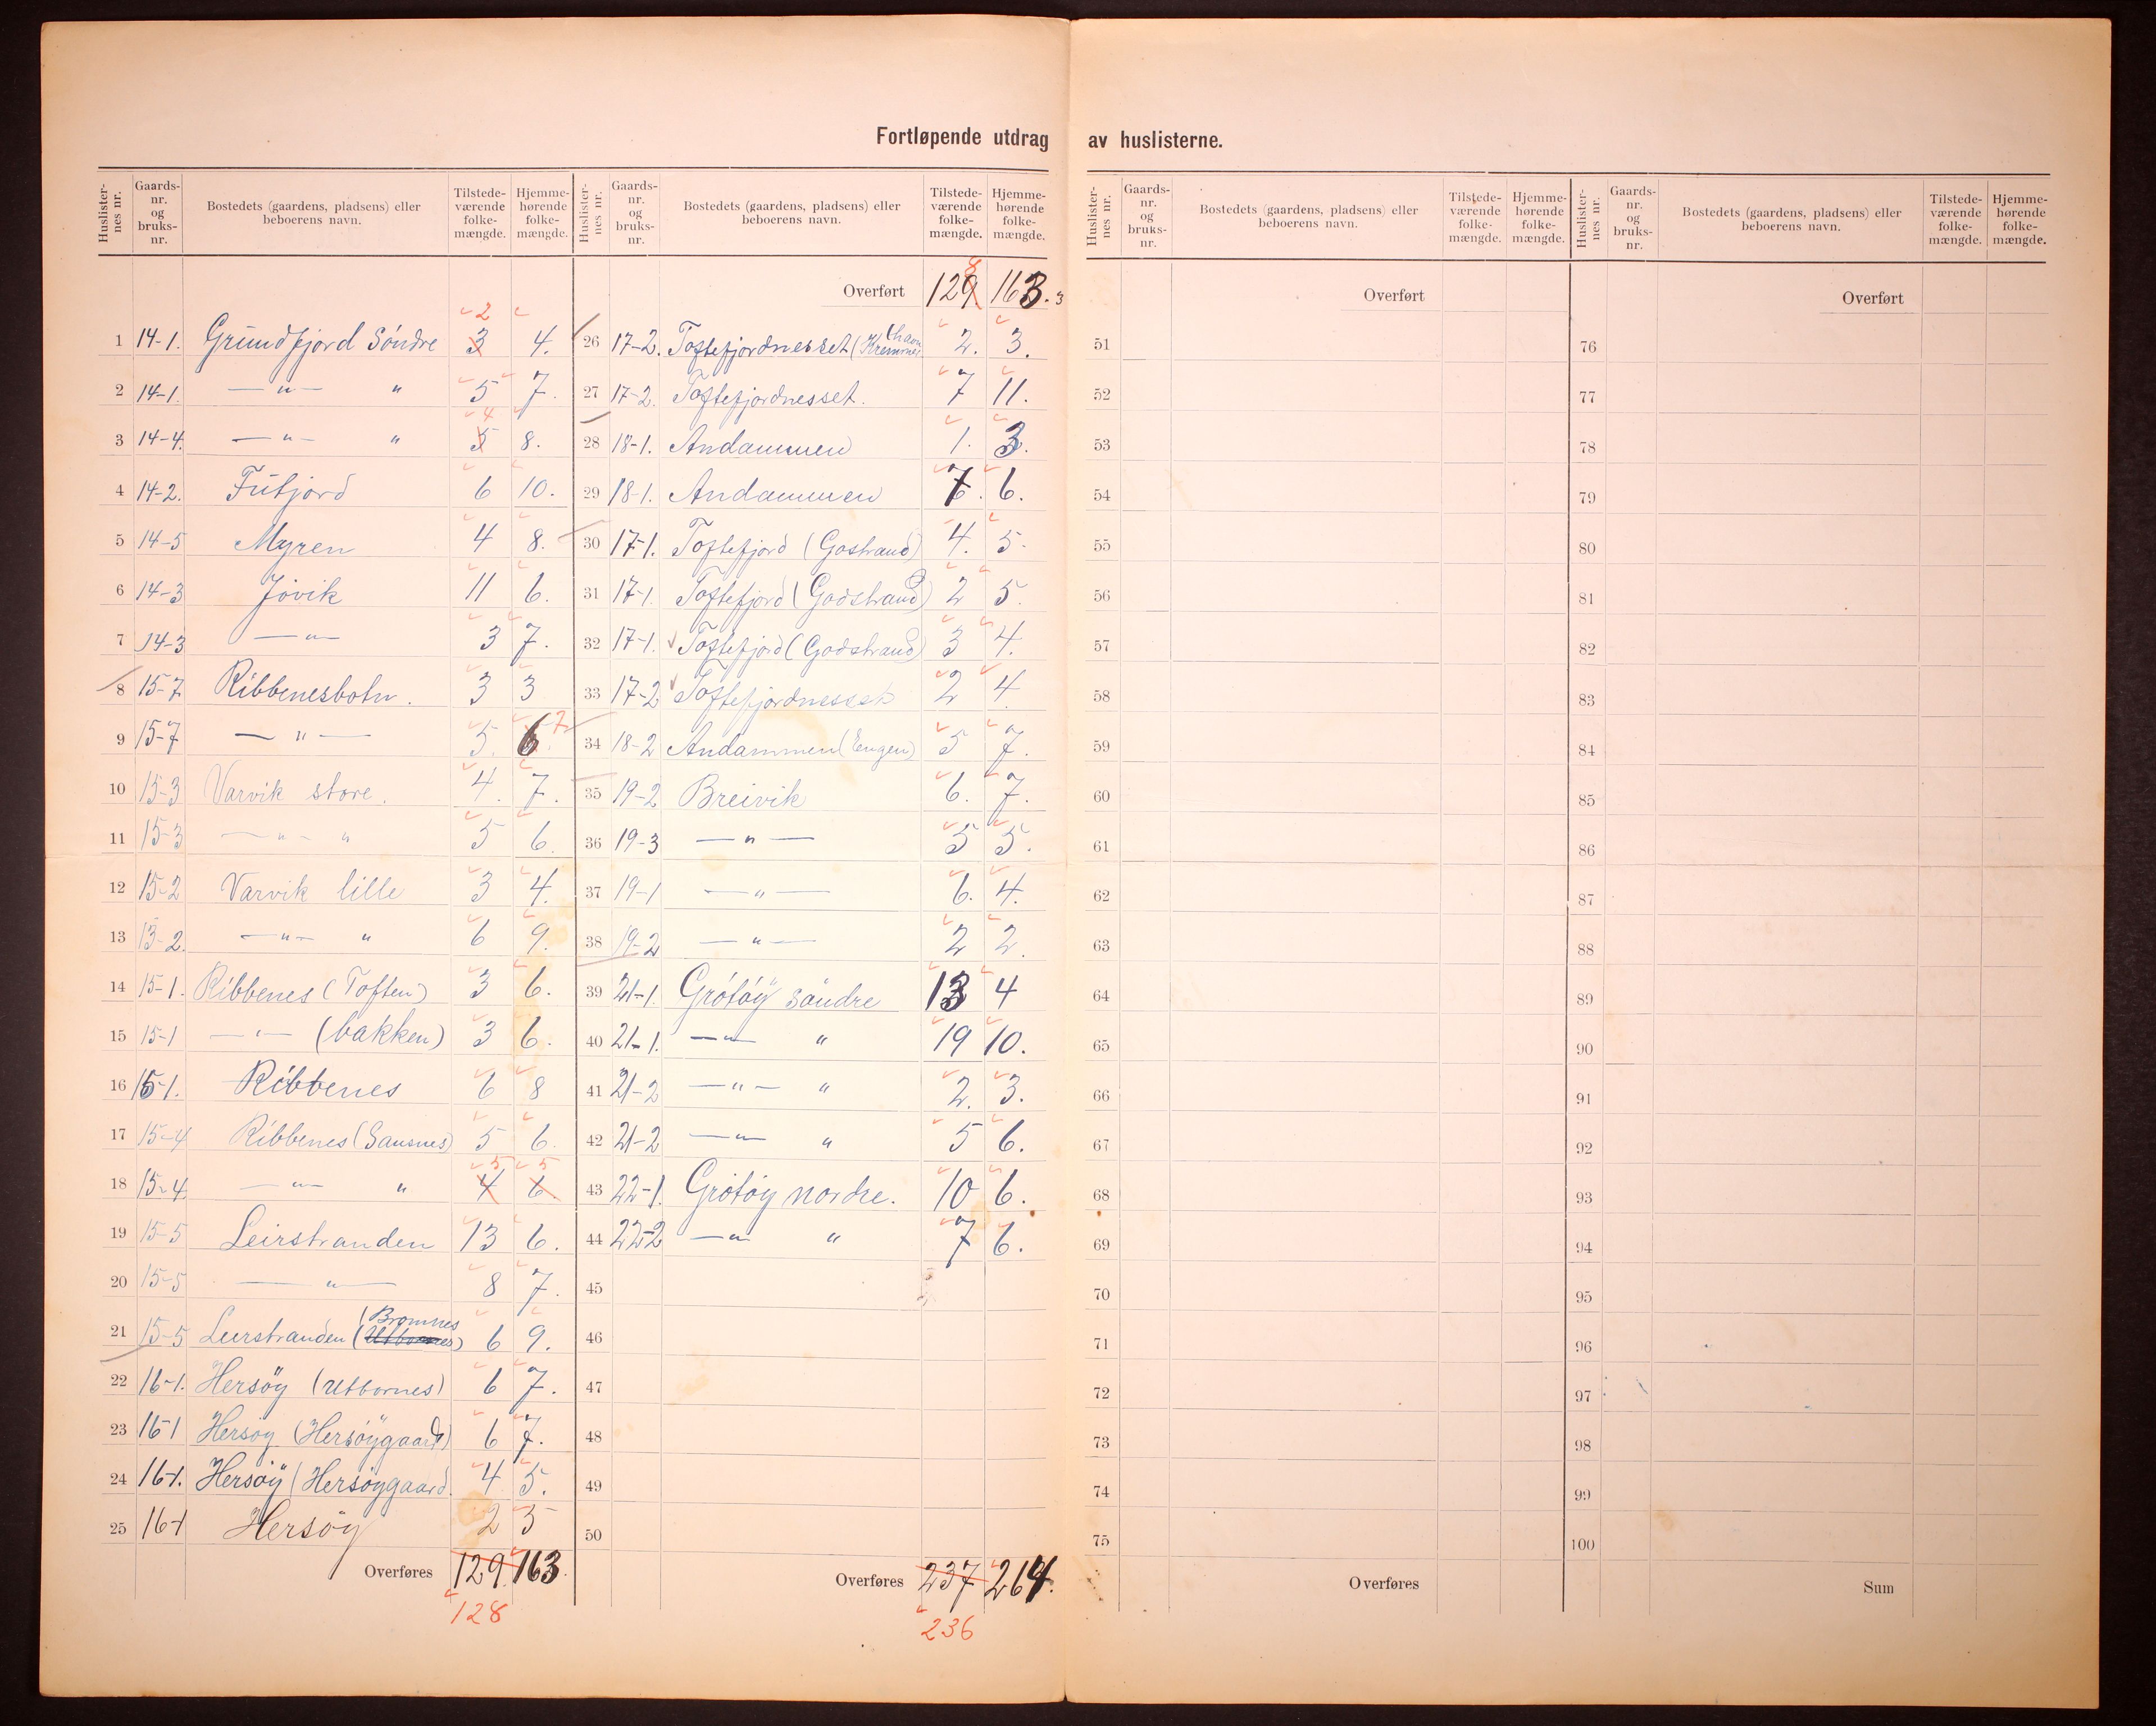 Fortløpende utdrag av huslisterne.
Huslisternes nr. Gaards-nr. og bruks-nr. Bostedets (gaardens, pladsens) eller beboerens navn. Tilstede-værende folke-mængde. Hjemme-hørende folke-mængde.
2
1 14-1. Grundfjord Söndre 3 4.
2 14-1. — " — " 5 7.
4
3 14-4. — " — " 5 8.
4 14-2. Futjord 6 10.
5 14-5 Myren 4 8.
6 14-3 Jövik 11 6.
7 14-3 — " — 3 7.
8 15-7 Ribbenesbotn. 3 3
9 15-7 — " — 5. 6. 7
10 15-3 Varvik store. 4. 7.
11 15-3 — " — " 5 6.
12 15-2 Varvik lille 3 4.
13 15-2. — " — " 6 9.
14 15-1. Ribbenes (Toften) 3 6.
15 15-1 — " — (bakken) 3 6.
16 15-1. Ribbenes 6 8
17 15-4 Ribbenes (Sausnes) 5 6.
5 5
18 15-4 — " — " 4 6.
19 15-5 Leirstranden 13 6.
20 15-5 — " — 8 7.
(Bromnes
21 15-5 Leirstranden (Utbornes) 6 9.
22 16-1. Hersöy (Utbornes) 6 7.
23 16-1 Hersöy (Hersöygaard) 6 7.
24 16-1. Hersöy (Hersöygaard. 4 5.
25 16-1 Hersöy 2 5
Overføres 129. 163.
128
Huslisternes nr. Gaards-nr. og bruks-nr. Bostedets (gaardens, pladsens) eller beboerens navn. Tilstede-værende folke-mængde. Hjemme-hørende folke-mængde.
8
Overført 129 163. 3
havn
26 17-2. Toftefjordnesset (Kremmer 2. 3.
27 17-2. Toftefjordnesset. 7 11.
28 18-1. Andammen 1. 3.
29 18-1. Andammen 7. 6.
30 17-1. Toftefjord (Gostrand) 4. 5.
31 17-1 Toftefjord (Godstrand) 2 5.
32 17-1. Toftefjord (Godstrand) 3 4.
33 17-2 Toftefjordnesset 2 4.
34 18-2 Andammen (Engen) 5 7.
35 19-2 Breivik 6. 7.
36 19-3 — " — 5 5.
37 19-1 — " — 6. 4.
38 19-2 — " — 2 2.
39 21-1. Grötöy söndre 13 4
40 21-1. — " — " 19 10.
41 21-2 — " — " 2. 3.
42 21-2 — " — " 5 6.
43 22-1. Grötöy nordre. 10 6.
44 22-2 — " — " 7 6.
45
46
47
48
49
50
Overføres 237 264.
236
Huslisternes nr. Gaards-nr. og bruks-nr. Bostedets (gaardens, pladsens) eller beboerens navn. Tilstede-værende folke-mængde. Hjemme-hørende folke-mængde.
Overført
51
52
53
54
55
56
57
58
59
60
61
62
63
64
65
66
67
68
69
70
71
72
73
74
75
Overføres
Huslisternes nr. Gaards-nr. og bruks-nr. Bostedets (gaardens, pladsens) eller beboerens navn. Tilstede-værende folke-mængde. Hjemme-hørende folke-mængde.
Overført
76
77
78
79
80
81
82
83
84
85
86
87
88
89
90
91
92
93
94
95
96
97
98
99
100
Sum